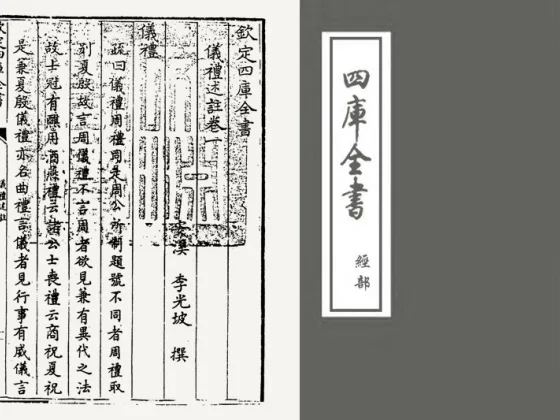 欽定四庫全書
儀禮述註卷一
安溪 李光坡 撰
儀禮
疏曰儀禮周禮同是周公所制題號不同者周禮取
別夏殷故言周儀禮不言周者欲見兼有異代之法
故士冠有醮用酒燕禮云諸公士喪禮云商祝夏祝
是兼夏殷儀禮亦名曲禮言儀者見行事有威儀言
四庫全書
經部